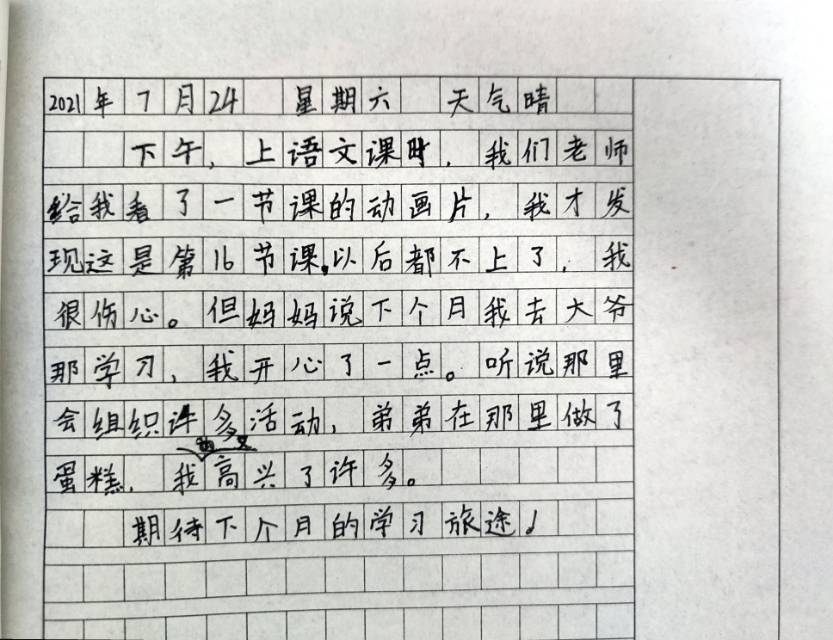 2021年7月24 星期六 天气晴
下午，上语文课时，我们老师
给我看了一节课的动画片，我才发
现这是第16节课，以后都不上了，我
很伤心。但妈妈说下个月我去大爷
那学习，我开心了一点。听说那里
会组织许多活动，弟弟在那里做了
蛋糕，我高兴了许多。
期待下个月的学习旅途！